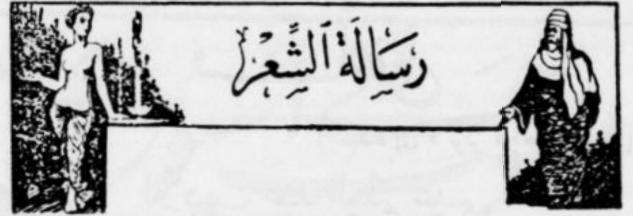 رِسَالَةُ ٱلشِّعْرِ